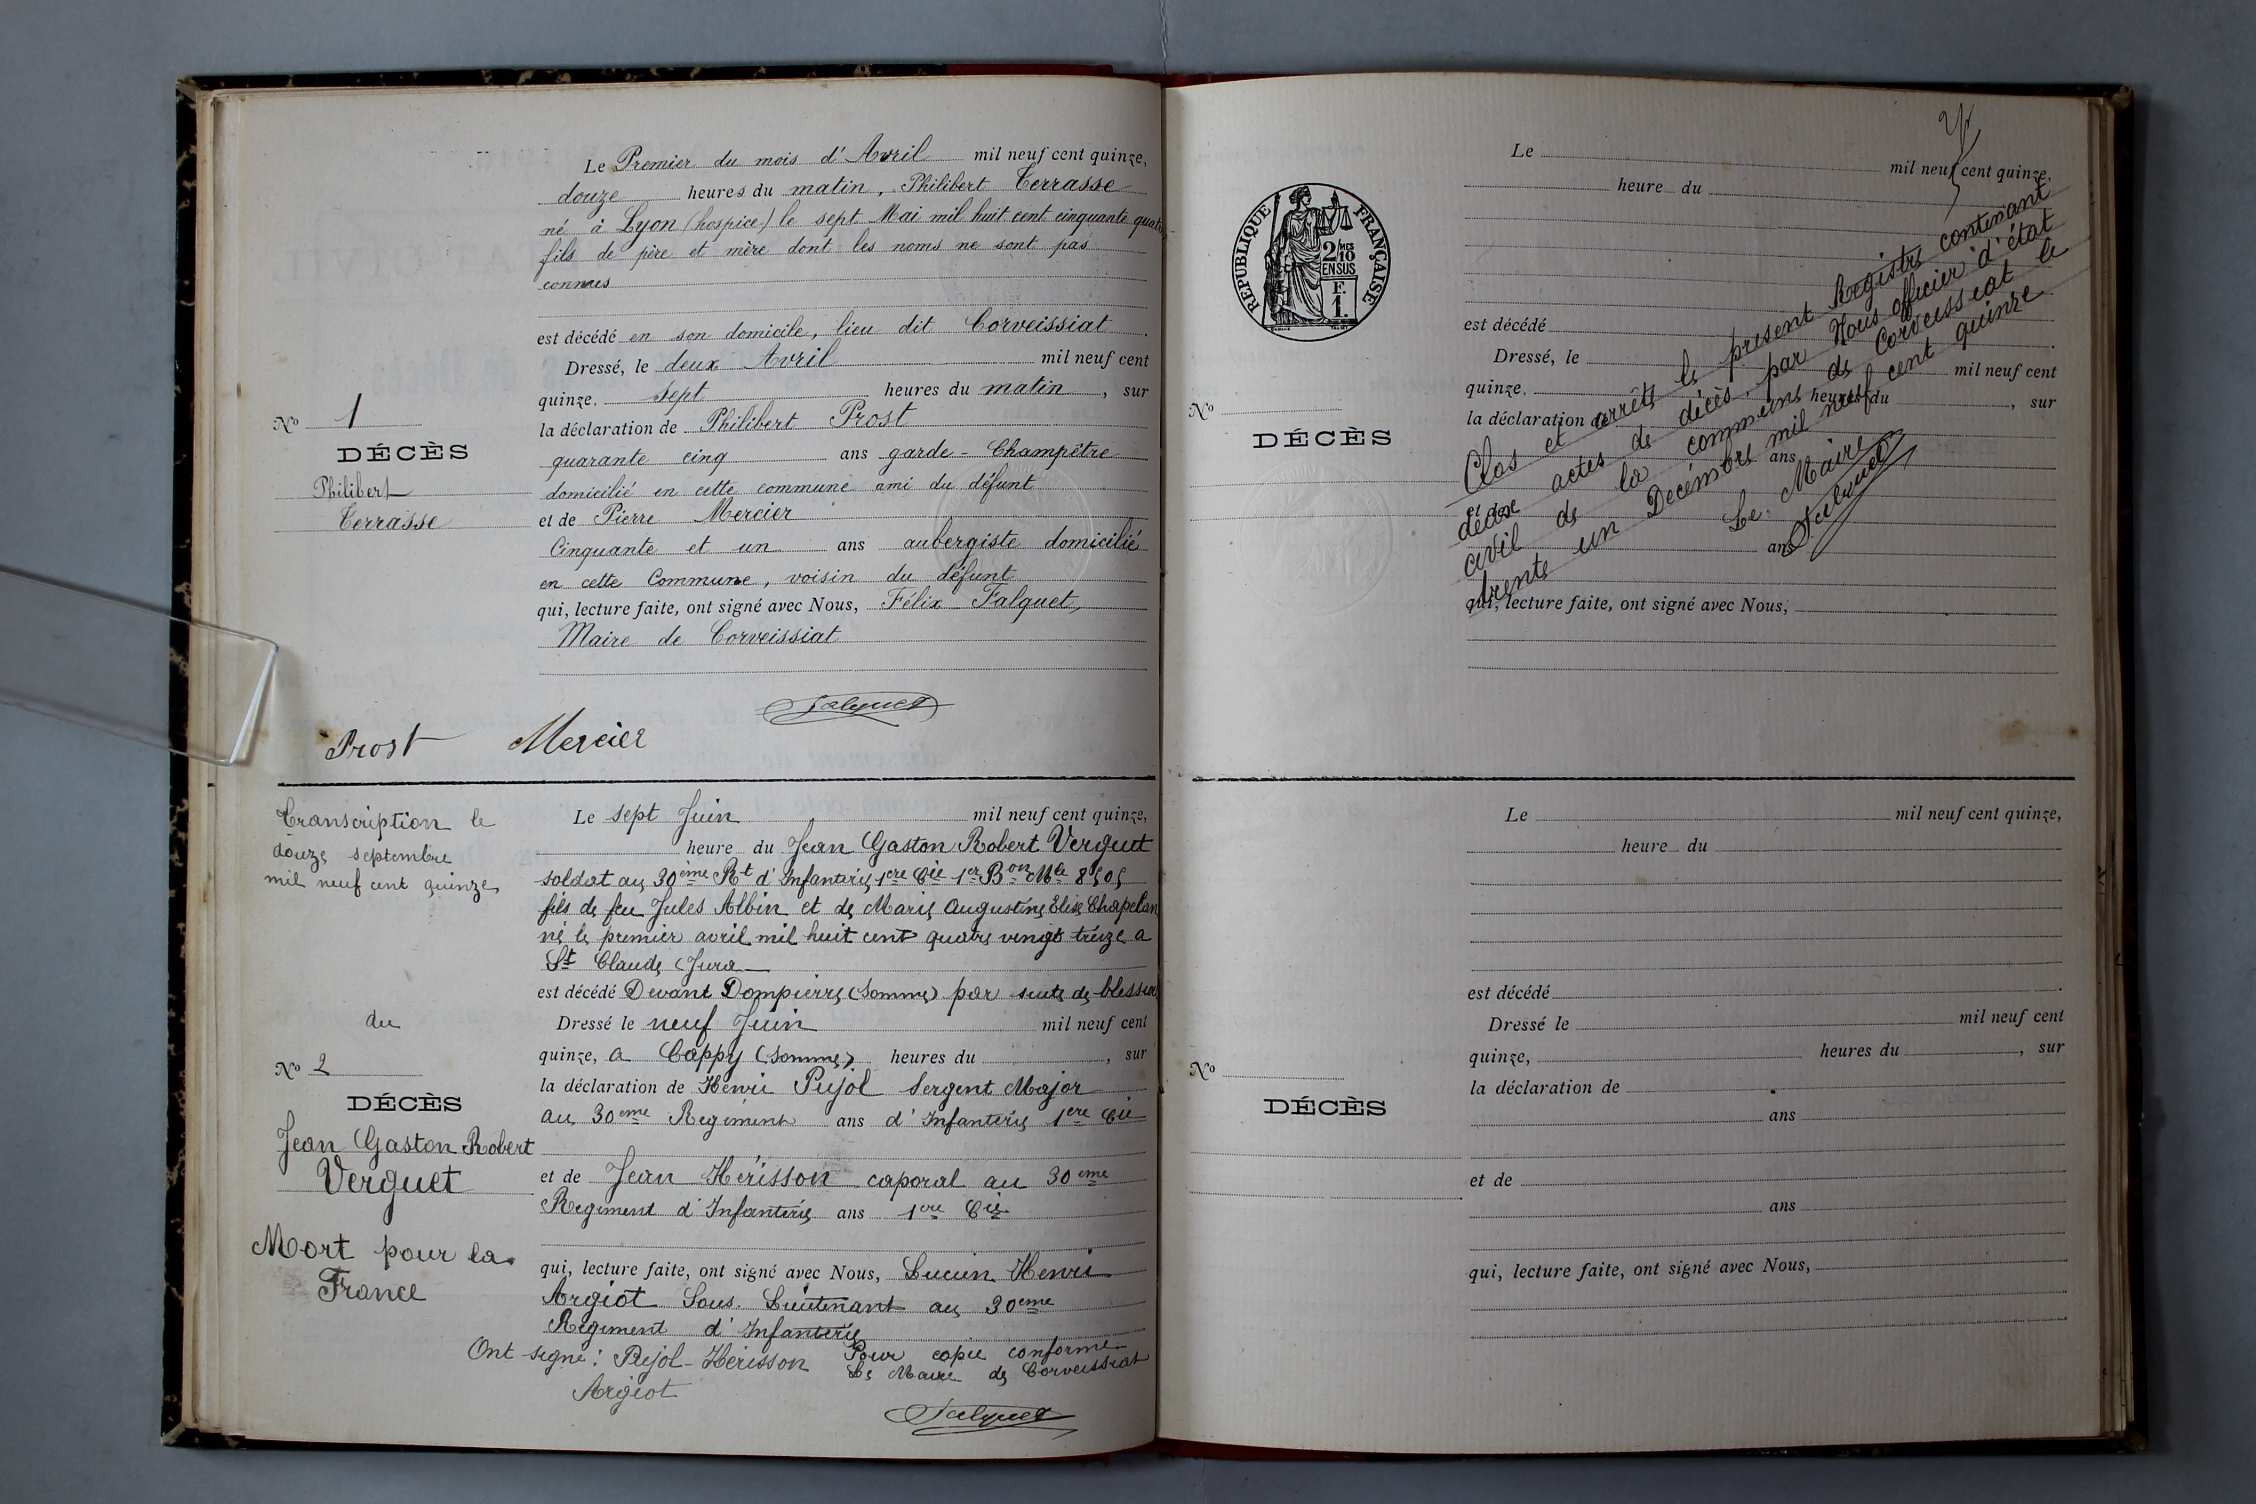 Le Premier du mois d'Avril mil neuf cent quinze,
douze heures du matin, Philibert Terrasse
né à Lyon (hospice) le sept Mai mil huit cent cinquante quatre
fils de père et mère dont les noms ne sont pas
connus
est décédé en son domicile, lieu dit Corveissiat
Dressé, le deux Avril mil neuf cent
quinze. sept heures du matin, sur
la déclaration de Philibert Prost
quarante cinq ans garde-Champêtre
domicilié en cette commune ami du défunt
et de Pierre Mercier
Cinquante et un ans aubergiste domicilié
en cette Commune, voisin du défunt
qui, lecture faite, ont signé avec Nous, Félix Falquet,
Maire de Corveissiat
No 1
DÉCÈS
Philibert
Terrasse
Falquet
Prost Mercier
Transcription le
douze septembre
mil neuf cent quinze
du
No 2
DÉCÈS
Jean Gaston Robert
Verguet
Mort pour la
France
Le sept Juin mil neuf cent quinze,
heure du Jean Gaston Robert Verguet
soldat au 30ème Rt d'Infanterie 1ere Cie 1er Bon Mle 8505
fils de feu Jules Albin et de Marie Augustine Elise Chapelan
né le premier avril mil huit cent quatre vingt treize a
St Claude (Jura
est décédé Devant Dompierre (Somme) par suite de blessure
Dressé le neuf Juin mil neuf cent
quinze, a Cappy (Somme) heures du , sur
la déclaration de Henri Pujol Sergent Major
au 30eme Regiment ans d'Infanterie 1ere Cie
et de Jean Hérisson caporal au 30eme
Regiment d'Infanterie ans 1ere Cie
qui, lecture faite, ont signé avec Nous, Lucien Henri
Argiot Sous. Lieutenant au 30eme
Régiment d'Infanterie
Ont signé: Pujol-Hérisson Pour copie conforme
Le Maire de Corveissiat
Argiot
Falquet
RÉPUBLIQUE FRANÇAISE
2/10 MES
EN SUS
F.
1.
No
DÉCÈS
Le mil neuf cent quinze,
heure du
est décédé .
Dressé, le mil neuf cent
quinze. heures du , sur
la déclaration de
ans
et de
ans
qui, lecture faite, ont signé avec Nous,
Clos et arrêté le présent Registre contenant
deux actes de décès, par Nous officier d'état
civil de la commune de Corveissiat le
trente un Decémbre mil neuf cent quinze
Le Maire
Falquet
No
DÉCÈS
Le mil neuf cent quinze,
heure du
est décédé .
Dressé le mil neuf cent
quinze, heures du , sur
la déclaration de
ans
et de
ans
qui, lecture faite, ont signé avec Nous,